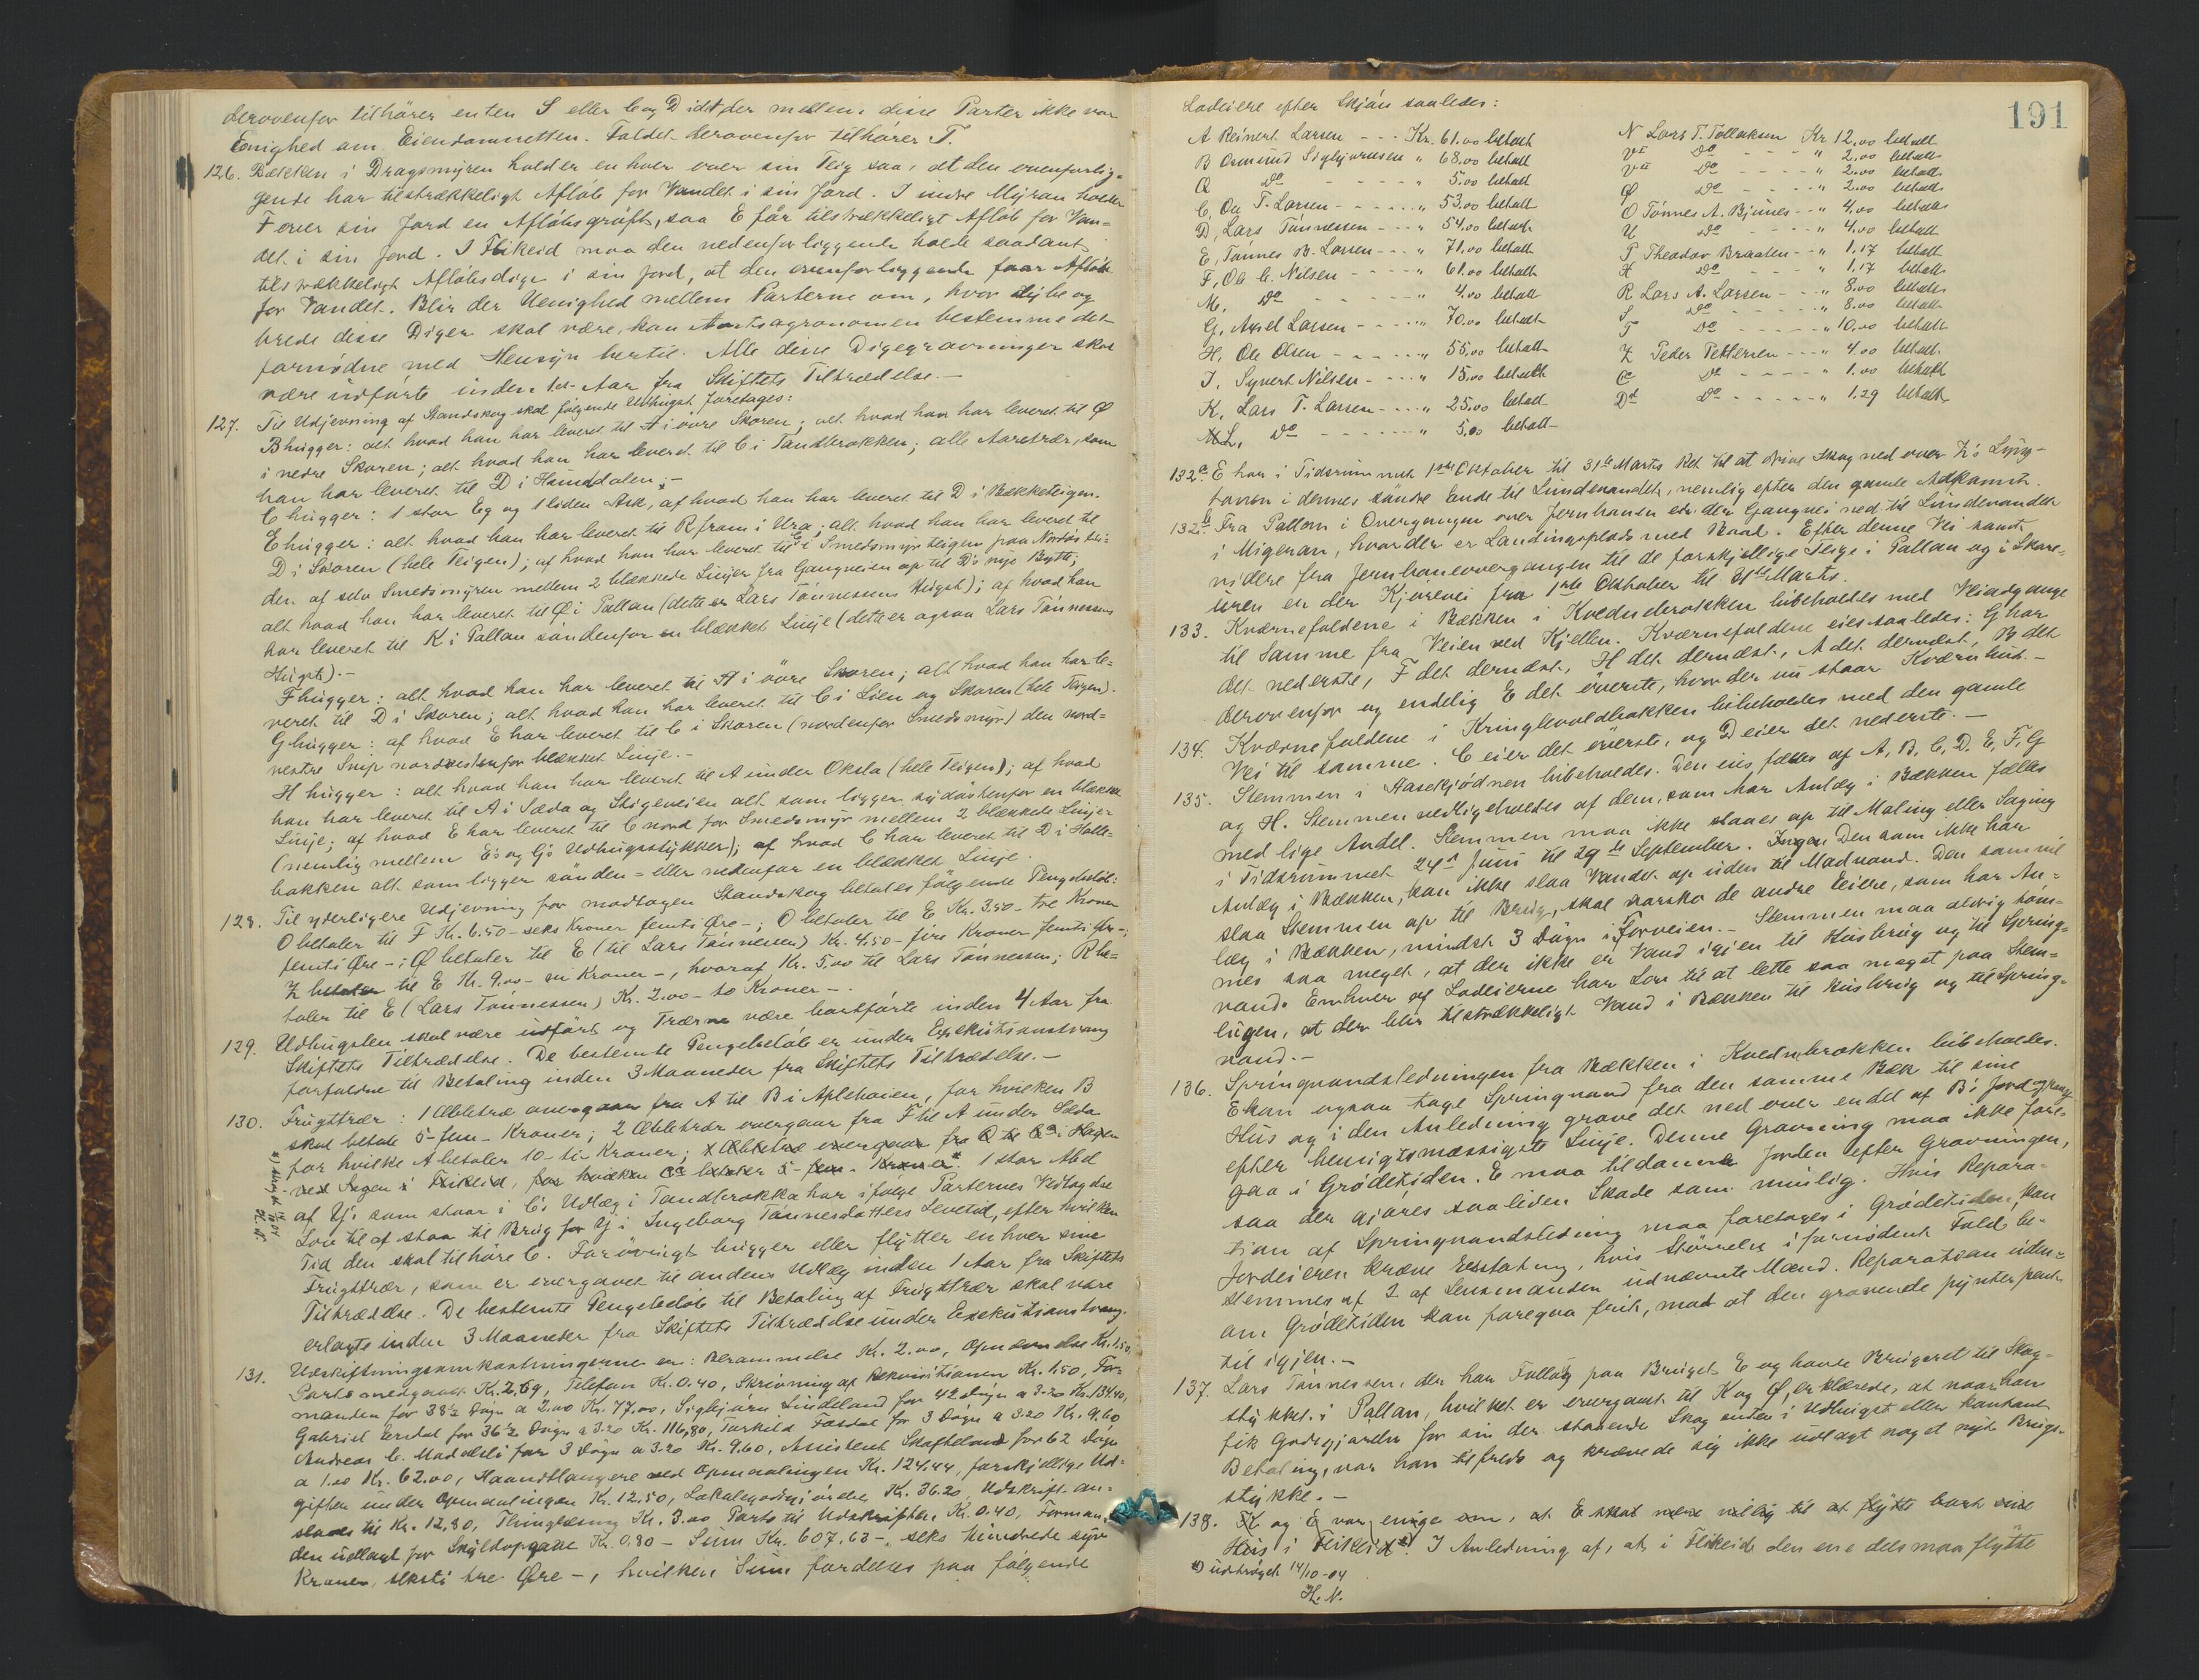 derovenfor tilhörer enten S eller C og D idet der mellem disse Parter ikke var
Enighed om Eiendomsretten. Faldet derovenfor tilhörer T.
126. Bækken i Dragsmyren holder enhver over sin Teig saa, at den ovenforlig-
gende har tilstrækkeligt Afløb for Vandet i sin Jord. I indre Myran holder
F over sin Jord en Afløbsgrøft, saa E får tilstrækkeligt Afløb for Van-
det i sin Jord. I Flikeid maa den nedenforliggende holde saadant
tilstrækkeligt Afløbsdige i sin Jord, at den ovenforliggende faar Afløb
for Vandet. Blir der Uenighed mellem Parterne om, hvor dybe og
brede disse Diger skal være, kan Amtsagronomen bestemme det
fornødne med Hensyn hertil. Alle disse Digegravninger skal
være udførte inden 1et Aar fra Skiftets Tiltrædelse.-
127. Til Udjevning af Standskog skal følgende Udhugst foretages:
B hugger: alt hvad han har leveret til A i øvre Skoren; alt hvad han har leveret til Ø
i nedre Skoren; alt hvad han har leveret til C i Tandbrokken; alle Aaretrær, som
han har leveret til D i Hauddalen;-
C hugger: 1 stor Eg og 1 liden Ask, af hvad han har leveret til D i Bækketeigen.
E hugger: alt hvad han har leveret til R fram i Ura; alt hvad han har leveret til
D i Skoren (hele Teigen); af hvad han har leveret til C i Smedsmyr teigen paa Nordøstsi-
den af selv Smedsmyren mellem 2 blækkede Linjer fra Gangveien op til D's nye Bytte;
alt hvad han har leveret til Ø i Pallan (dette er Lars Tönnessens Hugst); af hvad han
har leveret til K i Pallan söndenfor en blækket Linje (dette er ogsaa Lars Tönnessens
Hugst).-
F hugger: alt hvad han har leveret til A i øvre Skoren; alt hvad han har le-
veret til D i Skoren; alt hvad han har leveret til C i Lien og Skoren (hele Teigen).
G hugger: af hvad E har leveret til C i Skoren (nordenfor Smedsmyr) den nord-
vestre Snip nordvestenfor blækket Linje.-
H hugger: alt hvad han har leveret til A under Oksla (hele Teigen); af hvad
han har leveret til A i Sæda og Stigeveien alt som ligger sydøstenfor en blækket
Linje; af hvad E har leveret til C nord for Smedsmyr mellem 2 blækkede Linjer
(nemlig mellem E's og G's Udhugsstykker); af hvad C har leveret til D i Holle-
bakken alt som ligger sönden- eller nedenfor en blækket Linje.
128. Til yderligere Udjevning for modtagen Standskog betales følgende Pengebeløb:
O betaler til F Kr. 6.50 - seks Kroner femti Øre -; O betaler til E Kr. 3.50 - tre Kroner
femti Øre -; Ø betaler til E (til Lars Tönnessen) Kr. 4.50 - fire Kroner femti Øre -;
Z betaler til E Kr. 9.00 - ni Kroner -, hvoraf Kr. 5.00 til Lars Tönnessen; R be-
taler til E (Lars Tönnessen) Kr. 2.00 - to Kroner -.
129. Udhugsten skal være udført og Trærne være bortførte inden 4 Aar fra
Skiftets Tiltrædelse. De bestemte Pengebeløb er under Exekutionstvang
forfaldne til Betaling inden 3 Maaneder fra Skiftets Tiltrædelse.-
130. Frugttrær: 1 Æbletræ overgaar fra A til B i Aplehaien, for hvilken B
skal betale 5 - fem - Kroner; 2 Æbletrær overgaar fra F til A under Sæda
for hvilke A betaler 10 - ti - Kroner; 1 Æbletræ overgaar fra Q til Ca i Hagen
vedÆgen i Flikeid, for hvilken Ca betaler 5 - fem - Kroner*. 1 stor Abel
af G's som staar i C's Udlæg i Tandbrokka har ifølge Parternes Vedtagelse
Lov til at staa til Brug for G i Ingeborg Tönnesdatters Levetid, efter hvilken
Tid den skal tilhöre C. Forövrigt hugger eller flytter enhver sine
Frugttrær, som er overgaaet til andens Udlæg inden 1 Aar fra Skiftets
Tiltrædelse. De bestemte Pengebeløb til Betaling af Frugttrær skal være
erlagte inden 3 Maaneder fra Skiftets Tiltrædelse under Exekutionstvang.
*) utstrøget 14/10 04
H. N.
131. Udskiftningsomkostningerne er: Berammelse Kr. 2.00, Opnævnelse Kr. 1.50,
Porto medgaaet Kr. 2.69, Telefon Kr. 0.40, Skrivning af Rekvisitionen Kr. 1.50, For-
manden for 38½ Døgn a 2.00 Kr. 77.00, Sigbjørn Lindeland for 42 Døgn a 3.20 Kr. 134.40,
Gabriel Årsdal for 36½ Døgn a 3.20 Kr. 116,80, Torkild Fosdal for 3 Døgn a 3.20 Kr. 9.60
Andreas C. Modalsli for 3 Døgn a 3.20 Kr. 9.60, Assistent Skofteland for 62 Døgn
a 1.00 Kr. 62.00, Haandlangere ved Opmaalingen Kr. 124.44, forskjellige Ud-
gifter under Opmaalingen Kr. 12.50, Lokalegodtgjørelse Kr. 36.20, Udskrift an-
slaaes til Kr. 12,80, Thinglæsning Kr. 3.00 Porto til Udskriften Kr. 0.40, Forman-
den udlagt for Skyldopgave Kr. 0.80 - Sum Kr. 607,63 -, seks Hundrede syv
Kroner, seksti tre Øre -, hvilken Sum fordeles paa følgende
191
Lodeiere efter Skjøn saaledes:
A Reinert Larsen - - - Kr. 61.00 betalt
B Osmund Sigbjørnsen " 68.00 betalt
Q do - - - - " 5.00 betalt
C, Ola T. Larsen - - - - - " 53.00 betalt
D, Lars Tönnessen - - - " 54.00 betalt
E, Tönnes B. Larsen - - - " 71.00 betalt
F, Ole C. Nilsen - - - - " 61.00 betalt
M, do - - - - - - " 4.00 betalt
G, Axel Larsen - - - - " 70.00 betalt
H, Ole Olsen - - - - - " 55.00 betalt
J, Syvert Nilsen - - - - " 15.00 betalt
K, Lars T. Larsen - - - - " 25.00 betalt
L, do - - - - - - - " 5.00 betalt
N Lars T. Tollaksen Kr 12.00 betalt
VI do - - - - " 2.00 betalt
VII do - - - - " 2.00 betalt
Ø do - - - - " 2.00 betalt
O Tönnes A. Bjunes - - " 4.00 betalt
U do - - - - " 4.00 betalt
P Theodor Braaten - - " 1.17 betalt
X do - - - - " 1.17 betalt
R Lars A. Larsen - - - " 8.00 betalt
S do - - - - " 8.00 betalt
T do - - - - - " 10.00 betalt
Z Peder Pettersen - - - " 4.00 betalt
Ca do - - - - - " 1.00 betalt
Da do - - - - - - " 1.29 betalt
132a. E har i Tidsrummet 1ste Oktober til 31te Marts Ret til at drive Skog ned over Z's Lyng-
tavon i dennes söndre Ende til Lundevandet, nemlig efter den gamle Adkomst.
132b. Fra Pallan i Overgangen over Jernbanen er der Gangvei ned til Lundevandet
i Migeran, hvor der er Landingsplads med Baad. Efter denne Vei samt
videre fra Jernbaneovergangen til de forskjellige Teige i Pallan og i Skare-
uren er der Kjørevei fra 1ste Oktober til 31te Marts.
133. Kværnefaldene i Bækken i Kvednebrokken bibeholdes med Veiadgange
til Samme fra Veien ved Kjellen. Kværnefaldene eies saaledes: G har
det nederste, F det dernæst, H det dernæst, A det dernæst, B det
derovenfor og endelig E det överste, hvor der nu staar Kværnhus.-
134. Kværnefaldene i Kringlevoldbakken bibeholdes med den gamle
Vei til samme. C eier det överste, og D eier det nederste.-
135. Stemmen i Aasekjødnen bibeholdes. Den eies fælles af A, B, C, D, E, F, G
og H. Stemmen vedligeholdes af dem, som har Anlæg i Bækken fælles
med lige Andel. Stemmen maa ikke staaes op til Maling eller Saging
i Tidsrummet 24de Juni til 29de September. Ingen Den som ikke har
Anlæg i Bækken, kan ikke slaa Vandet op uden til Madvand. Den som vil
slaa Stemmen op til Brug, skal varsko de andre Eiere, som har An-
læg i Bækken, mindst 3 Døgn i Forveien.- Stemmen maa aldrig töm-
mes saa meget, at der ikke er Vand igjen til Husbrug og til Spring-
vand. Enhver af Lodeierne har Lov til at lette saa meget paa Stem-
lugen, at der blir tilstrækkeligt Vand i Bækken til Husbrug og til Spring-
vand.-
136. Springvandsledningen fra Bækken i Kvednebrokken bibeholdes.
E kan ogsaa tage Springvand fra den samme Bæk til sine
Hus og i den Anledning grave det ned over en del af B's Jord og gang
efter hensigtsmæssigste Linje. Denne Gravning maa ikke fore-
gaa i Grødetiden. E maa tildanne Jorden efter Gravningen,
saa der gjøres saaliden Skade som mulig. Hvis Repara-
tion af Springvandsledning maa foretages i Grødetiden, kan
Jordeieren kræve Erstatning, hvis Störrelse i fornødent Fald be-
stemmes af 2 af Lensmanden udnævnte Mænd. Reparation uden-
om Grødetiden kan foregaa frit, mod at den gravende pynter pent
til igjen.-
137. Lars Tönnessen, der har Follog paa Bruget E og havde Brugsret til Skog-
stykket i Pallan, hvilket er overgaaet til K og Ø, erklærede, at naar han
fik Godtgjørelse for sin der staaende Skog enten i Udhugst eller kontant
Betaling, var han tilfreds og krævede sig ikke udlagt noget nyt Brugs-
stykke.-
138. K og E var enige om, at E skal være villig til at flytte bort sine
Hus i Flikeid*). I Anledning af, at i Flikeid den ene dels maa flytte
*) udstrøget 14/10-04
H. N.